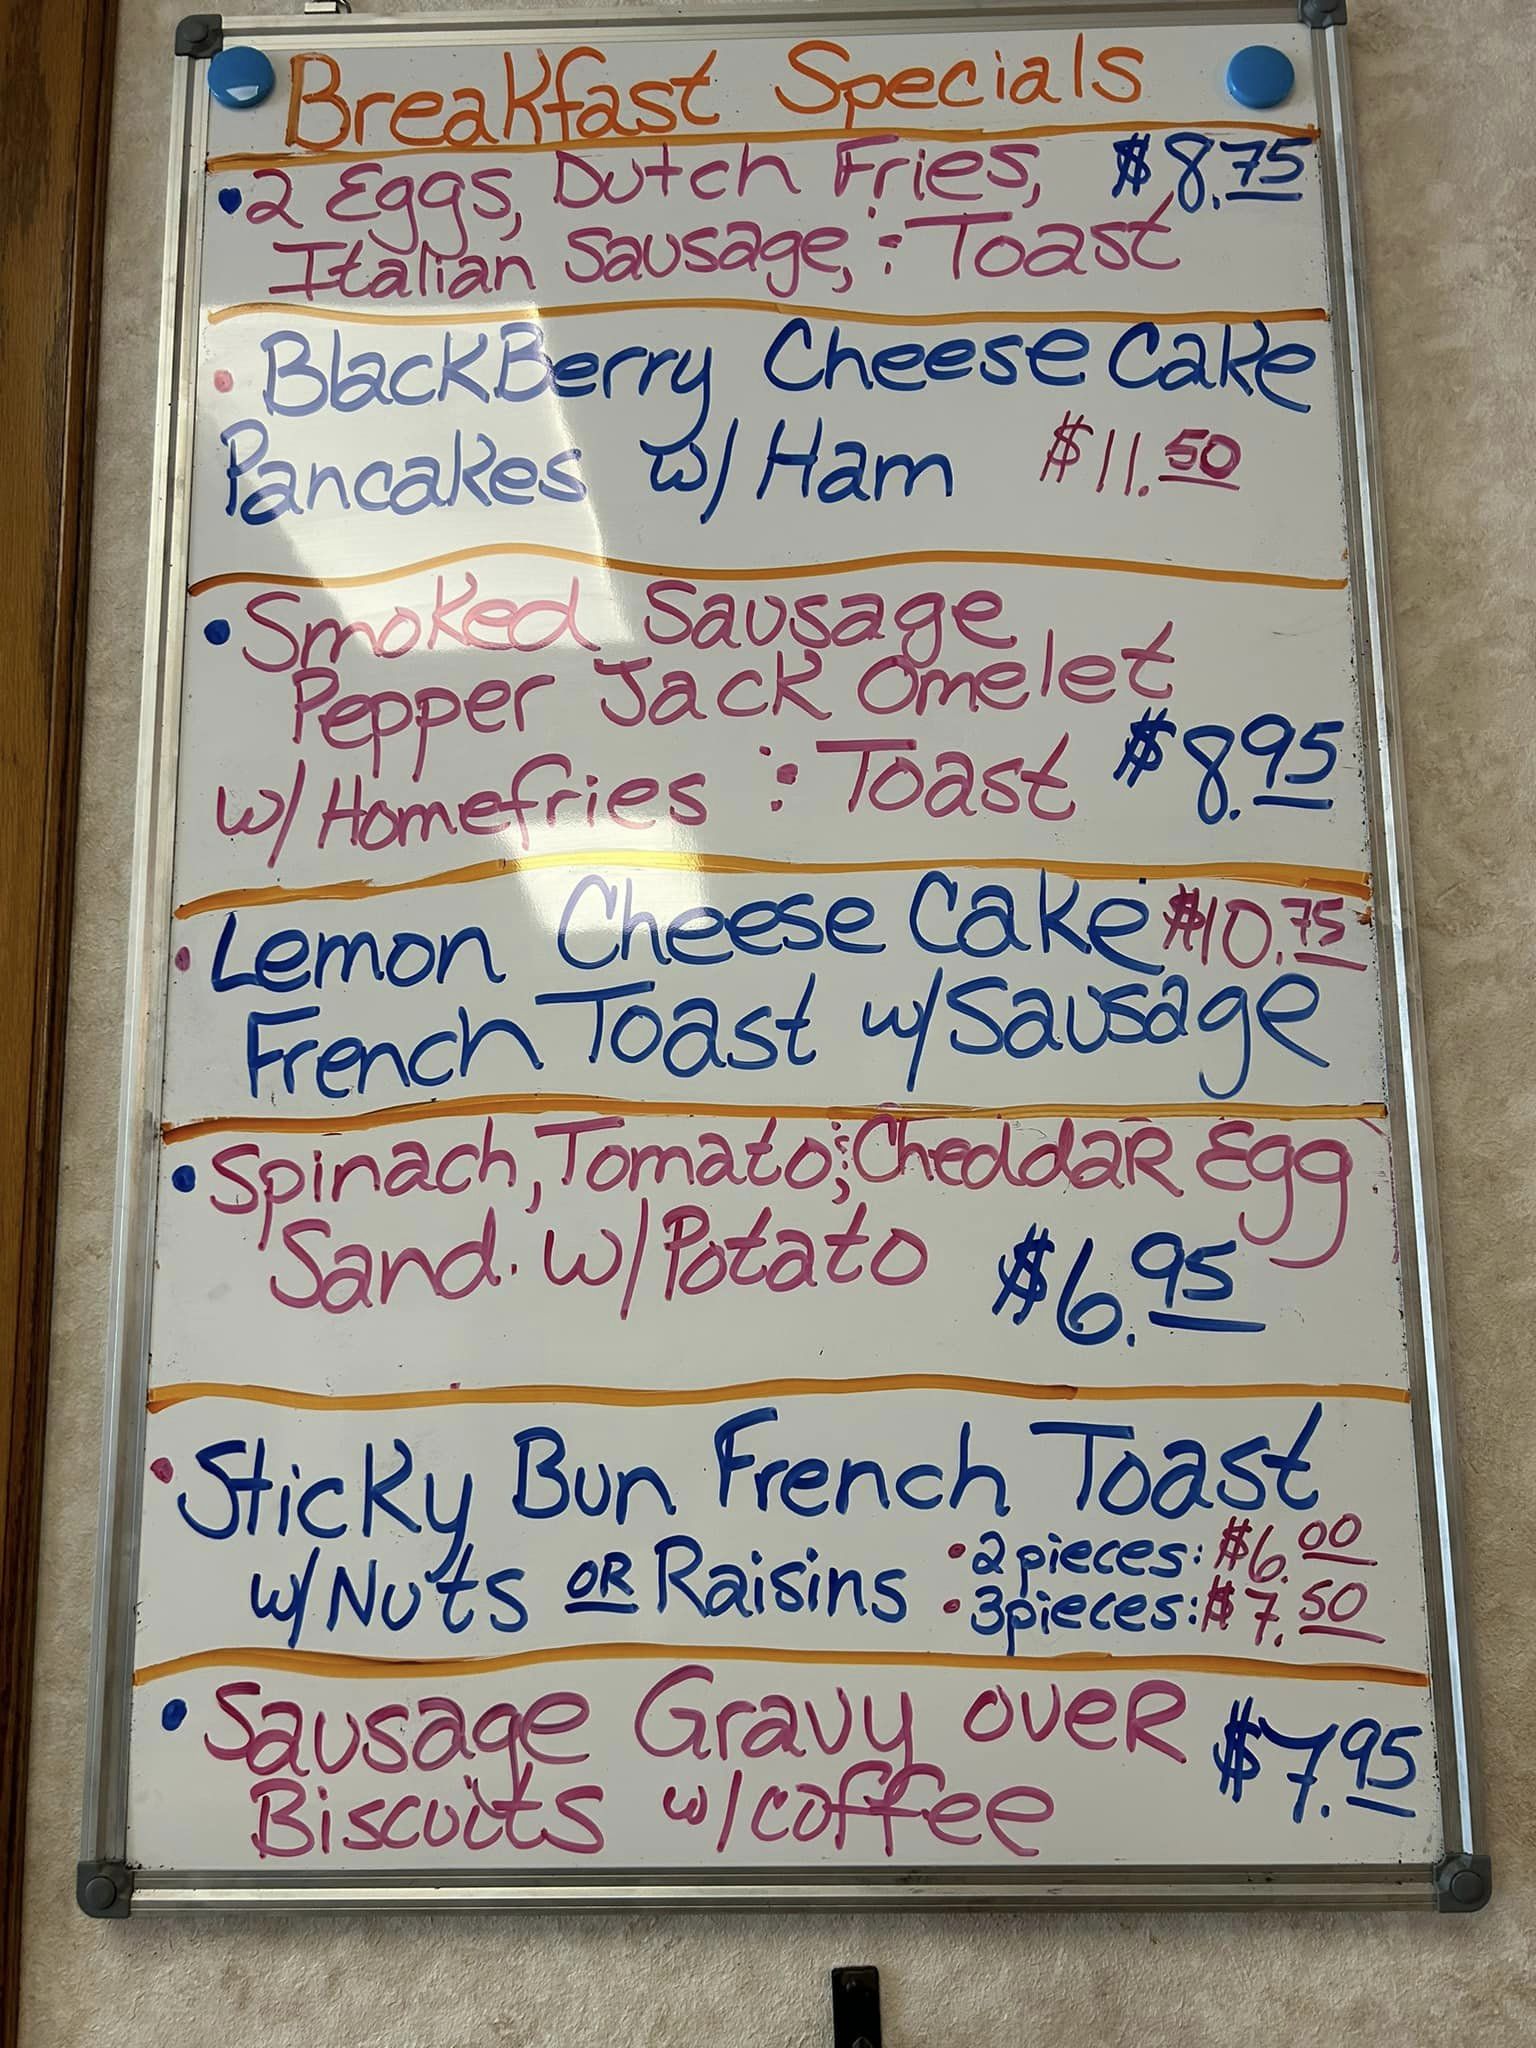 Breakfast Specials
• 2 Eggs, Dutch Fries, $8.75
Italian Sausage, & Toast
• BlackBerry Cheese Cake
Pancakes w/ Ham $11.50
• Smoked Sausage
Pepper Jack Omelet
w/ Homefries & Toast $8.95
• Lemon Cheese Cake $10.75
French Toast w/ Sausage
• Spinach, Tomato, & Cheddar Egg
Sand. w/ Potato $6.95
• Sticky Bun French Toast
w/ Nuts OR Raisins • 2 pieces: $6.00
• 3 pieces: $7.50
• Sausage Gravy over $7.95
Biscuits w/ coffee